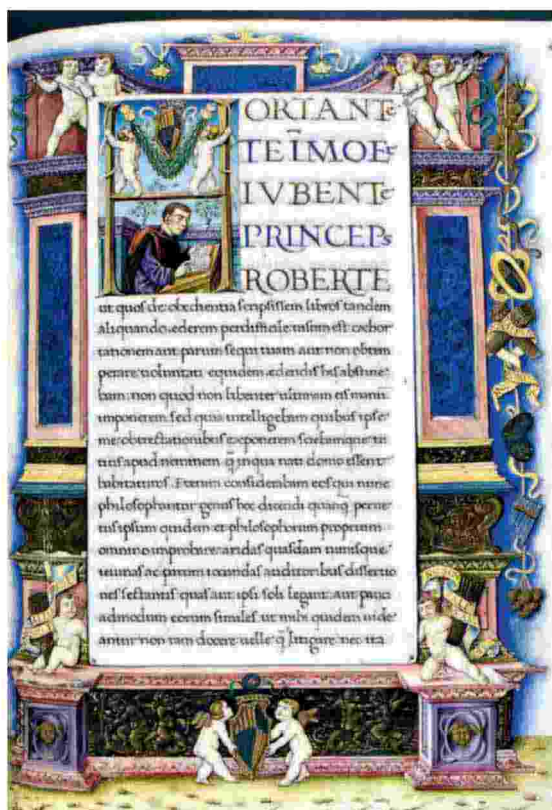 HORTANTe
TE ĪMOET
IVBENTe
PRINCEPs
ROBERTE
ut quos de obedientia scripsissem libros tandem
aliquando ederem perdifficile uisum est exhor
tationem aut parum sequi tuam aut non obtem
perare uoluntati equidem edendis his abstine
bam non quod non libenter ultimam eis manū
imponerem sed quia intelligebam quibus ipse
me obtrectationibus exponerem sciebamque
apud neminem q̄ inqua nati domo essent
habitaturos. Etenim considerabam eos qui nunc
philosophantur genus hoc dicendi quanq̄
ipsum quidem et philosophorum proprium
omnino improbare aridas quasdam nimisque
ieiunas ac parum iocundas auditoribus dissertio
nes sectantis quas aut ipsi soli legant aut pauci
admodum eorum similes ut mihi quidem uide
antur non tam docere uelle q̄ litigare nec ita